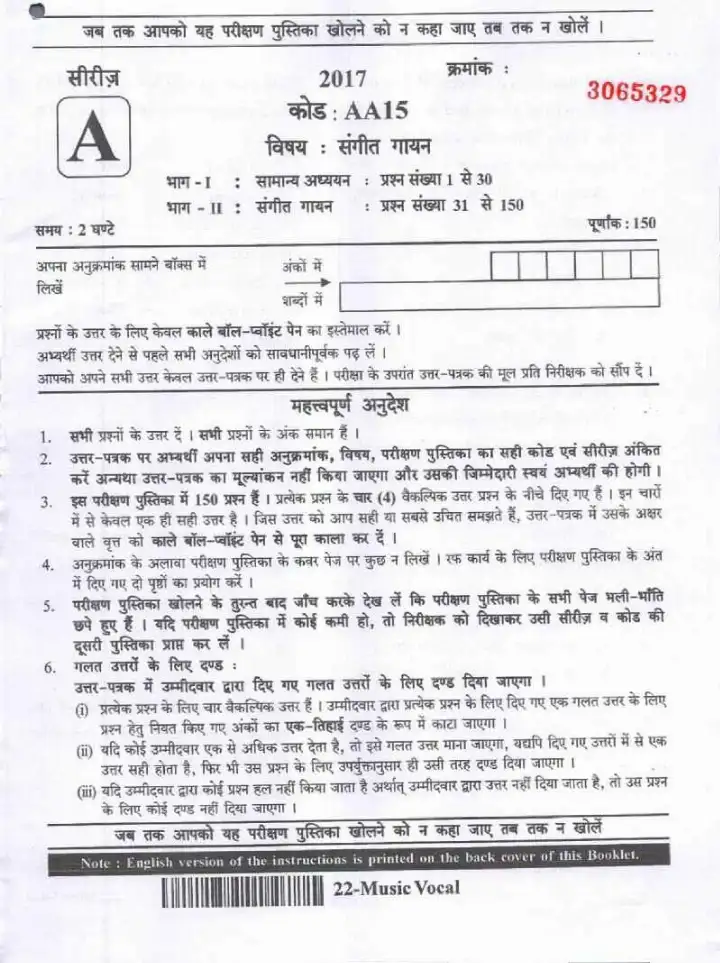 जब तक आपको यह परीक्षण पुस्तिका खोलने को न कहा जाए तब तक न खोलें ।
सीरीज़
A
2017
कोड : AA15
विषय : संगीत गायन
क्रमांक :
3065329
भाग - I : सामान्य अध्ययन : प्रश्न संख्या 1 से 30
भाग - II : संगीत गायन : प्रश्न संख्या 31 से 150
समय : 2 घण्टे
पूर्णांक : 150
अपना अनुक्रमांक सामने बॉक्स में
लिखें
अंकों में
शब्दों में
प्रश्नों के उत्तर के लिए केवल काले बॉल-प्वॉइंट पेन का इस्तेमाल करें ।
अभ्यर्थी उत्तर देने से पहले सभी अनुदेशों को सावधानीपूर्वक पढ़ लें ।
आपको अपने सभी उत्तर केवल उत्तर-पत्रक पर ही देने हैं । परीक्षा के उपरांत उत्तर-पत्रक की मूल प्रति निरीक्षक को सौंप दें ।
महत्त्वपूर्ण अनुदेश
1. सभी प्रश्नों के उत्तर दें । सभी प्रश्नों के अंक समान हैं ।
2. उत्तर-पत्रक पर अभ्यर्थी अपना सही अनुक्रमांक, विषय, परीक्षण पुस्तिका का सही कोड एवं सीरीज़ अंकित
करें अन्यथा उत्तर-पत्रक का मूल्यांकन नहीं किया जाएगा और उसकी जिम्मेदारी स्वयं अभ्यर्थी की होगी ।
3. इस परीक्षण पुस्तिका में 150 प्रश्न हैं । प्रत्येक प्रश्न के चार (4) वैकल्पिक उत्तर प्रश्न के नीचे दिए गए हैं । इन चारों
में से केवल एक ही सही उत्तर है । जिस उत्तर को आप सही या सबसे उचित समझते हैं, उत्तर-पत्रक में उसके अक्षर
वाले वृत्त को काले बॉल-प्वॉइंट पेन से पूरा काला कर दें ।
4. अनुक्रमांक के अलावा परीक्षण पुस्तिका के कवर पेज पर कुछ न लिखें । रफ कार्य के लिए परीक्षण पुस्तिका के अंत
में दिए गए दो पृष्ठों का प्रयोग करें ।
5. परीक्षण पुस्तिका खोलने के तुरन्त बाद जाँच करके देख लें कि परीक्षण पुस्तिका के सभी पेज भली-भाँति
छपे हुए हैं । यदि परीक्षण पुस्तिका में कोई कमी हो, तो निरीक्षक को दिखाकर उसी सीरीज़ व कोड की
दूसरी पुस्तिका प्राप्त कर लें ।
6. गलत उत्तरों के लिए दण्ड :
उत्तर-पत्रक में उम्मीदवार द्वारा दिए गए गलत उत्तरों के लिए दण्ड दिया जाएगा ।
(i) प्रत्येक प्रश्न के लिए चार वैकल्पिक उत्तर हैं । उम्मीदवार द्वारा प्रत्येक प्रश्न के लिए दिए गए एक गलत उत्तर के लिए
प्रश्न हेतु नियत किए गए अंकों का एक-तिहाई दण्ड के रूप में काटा जाएगा ।
(ii) यदि कोई उम्मीदवार एक से अधिक उत्तर देता है, तो इसे गलत उत्तर माना जाएगा, यद्यपि दिए गए उत्तरों में से एक
उत्तर सही होता है, फिर भी उस प्रश्न के लिए उपर्युक्तानुसार ही उसी तरह दण्ड दिया जाएगा ।
(iii) यदि उम्मीदवार द्वारा कोई प्रश्न हल नहीं किया जाता है अर्थात् उम्मीदवार द्वारा उत्तर नहीं दिया जाता है, तो उस प्रश्न
के लिए कोई दण्ड नहीं दिया जाएगा ।
जब तक आपको यह परीक्षण पुस्तिका खोलने को न कहा जाए तब तक न खोलें
Note : English version of the instructions is printed on the back cover of this Booklet.
22-Music Vocal